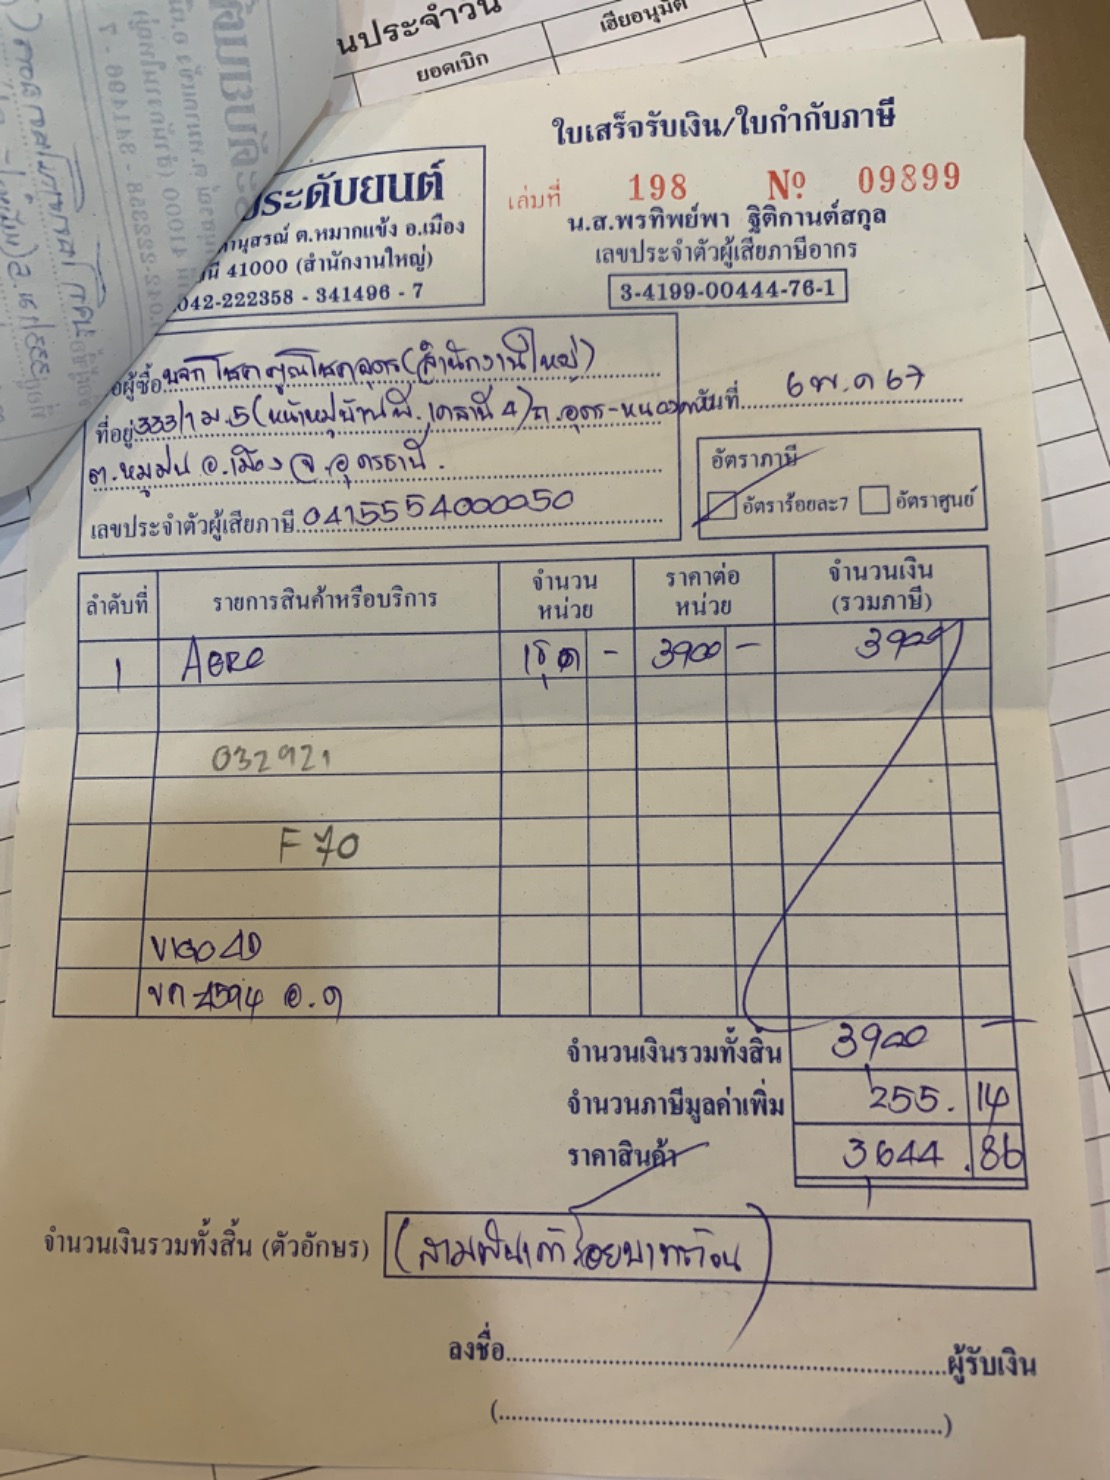 นประจำวัน
ยอดเบิก
เฮียอนุมัติ
ใบเสร็จรับเงิน/ใบกำกับภาษี
ระดับยนต์
เล่มที่ 198 No 09899
านุสรณ์ ต.หมากแข้ง อ.เมือง
น.ส.พรทิพย์พา ฐิติกานต์สกุล
นี 41000 (สำนักงานใหญ่)
เลขประจำตัวผู้เสียภาษีอากร
042-222358 - 341496 - 7
3-4199-00444-76-1
อผู้ซื้อ บจก โชคคูณโชคอุดร (สำนักงานใหญ่)
ที่อยู่ 333/1 ม.5 (หน้าหมู่บ้าน 4) ถ.อุดร-หนอง
วันที่ 6 พ.ค 67
ต.หมูม่น อ.เมือง จ.อุดรธานี.
เลขประจำตัวผู้เสียภาษี 0415554000050
อัตราภาษี
อัตราร้อยละ7 อัตราศูนย์
ลำดับที่ รายการสินค้าหรือบริการ จำนวนหน่วย ราคาต่อหน่วย จำนวนเงิน (รวมภาษี)
1 AERO 1ชุด - 3900 - 3900
032921
F 70
VIGO 4D
4594 อ.ด
จำนวนเงินรวมทั้งสิ้น 3900 -
จำนวนภาษีมูลค่าเพิ่ม 255.14
ราคาสินค้า 3644.86
จำนวนเงินรวมทั้งสิ้น (ตัวอักษร) (สามพันเก้าร้อยบาทถ้วน)
ลงชื่อ ผู้รับเงิน